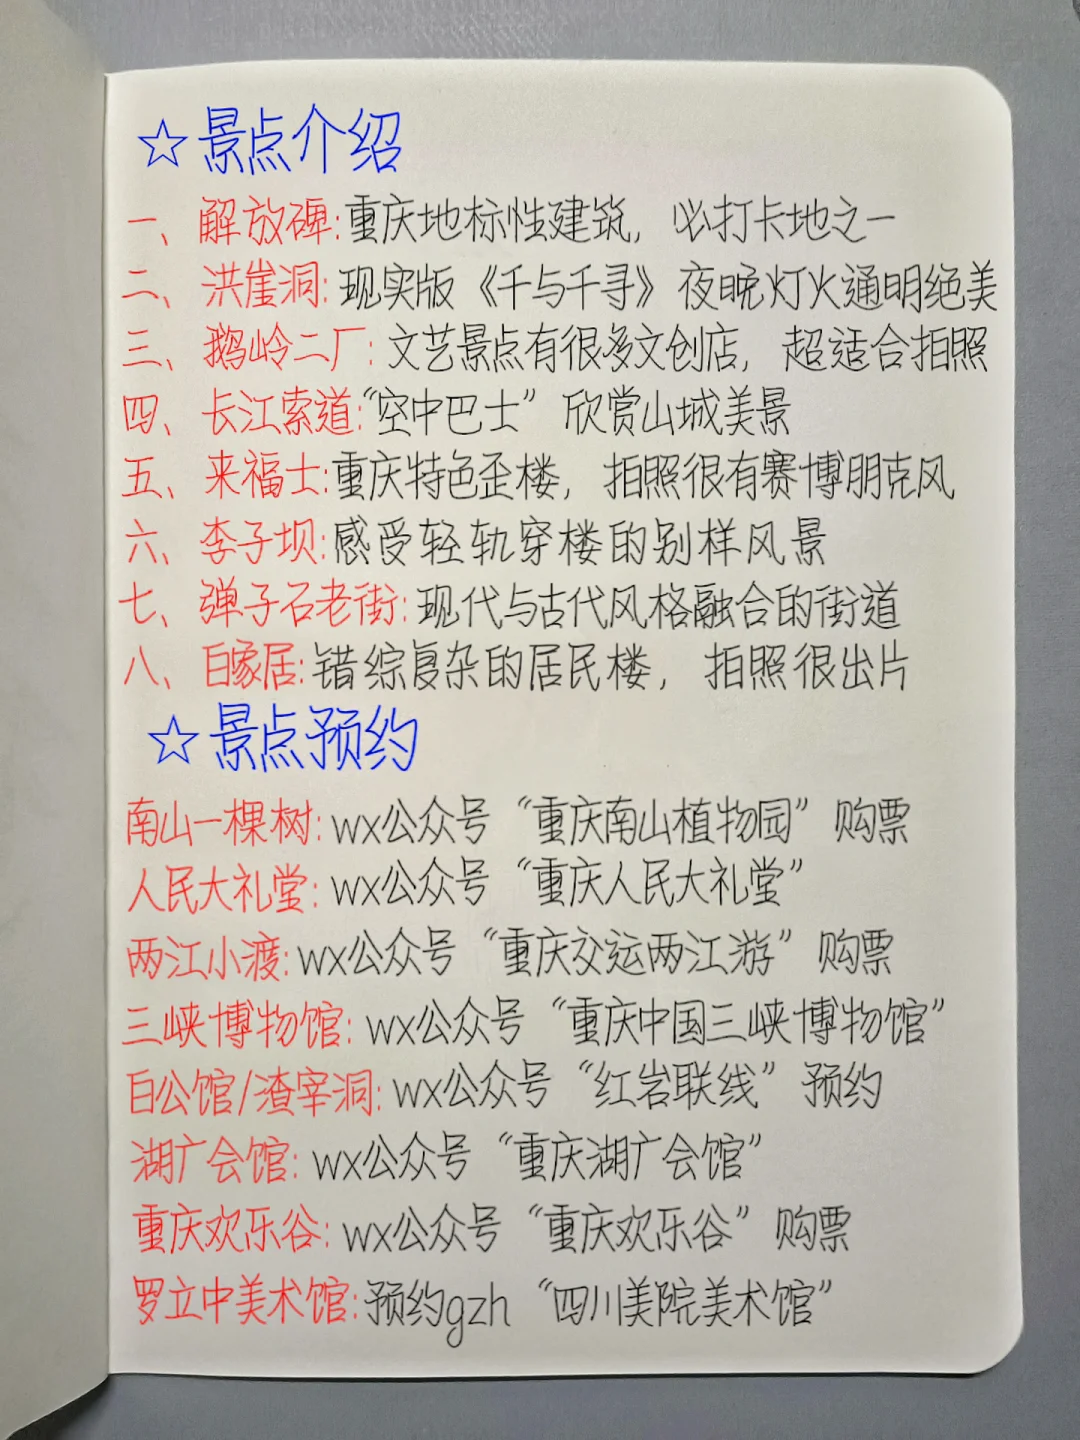 ☆景点介绍
一、解放碑:重庆地标性建筑，必打卡地之一
二、洪崖洞:现实版《千与千寻》夜晚灯火通明绝美
三、鹅岭二厂:文艺景点有很多文创店，超适合拍照
四、长江索道:“空中巴士”欣赏山城美景
五、来福士:重庆特色歪楼，拍照很有赛博朋克风
六、李子坝:感受轻轨穿楼的别样风景
七、弹子石老街:现代与古代风格融合的街道
八、白象居:错综复杂的居民楼，拍照很出片
☆景点预约
南山一棵树:wx公众号“重庆南山植物园”购票
人民大礼堂:wx公众号“重庆人民大礼堂”
两江小渡:wx公众号“重庆交运两江游”购票
三峡博物馆:wx公众号“重庆中国三峡博物馆”
白公馆/渣宰洞:wx公众号“红岩联线”预约
湖广会馆:wx公众号“重庆湖广会馆”
重庆欢乐谷:wx公众号“重庆欢乐谷”购票
罗立中美术馆:预约gzh“四川美院美术馆”